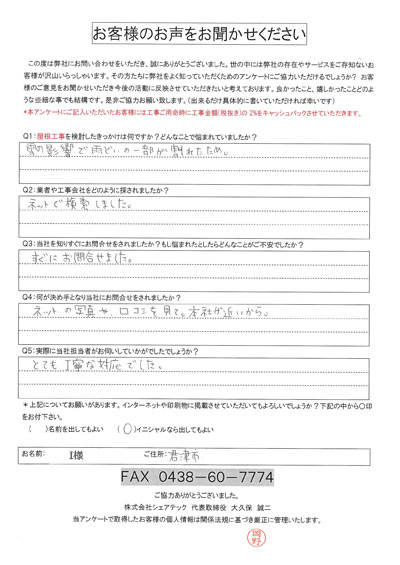 お客様のお声をお聞かせください
この度は弊社にお問い合わせをいただき、誠にありがとうございました。世の中には弊社の存在やサービスをご存知ないお
客様が沢山いらっしゃいます。その方たちに弊社をよく知っていただくためのアンケートにご協力いただけるでしょうか？ お客
様のご意見をお聞かせいただき今後の活動に反映させていただきたいと考えております。良かったこと、嬉しかったことどのよ
うな些細な事でも結構です。是非ご協力お願い致します。（出来るだけ具体的に書いていただければ幸いです）
*本アンケートにご記入いただいたお客様には工事ご用命時に工事金額(税抜き)の 2%をキャッシュバックさせていただきます。
Q1：屋根工事を検討したきっかけは何ですか？どんなことで悩まれていましたか？
雪の影響で雨どいの一部が割れたため。
Q2：業者や工事会社をどのように探されましたか？
ネットで検索しました。
Q3：当社を知りすぐにお問合せをされましたか？もし悩まれたとしたらどんなことがご不安でしたか？
すぐにお問合せました。
Q4：何が決め手となり当社にお問合せをされましたか？
ネットの写真や、口コミを見て。本社が近いから。
Q5：実際に当社担当者がお伺いしていかがでしたでしょうか？
とても丁寧な対応でした。
＊上記についてお願いがあります。インターネットや印刷物に掲載させていただいてもよろしいでしょうか？下記の中から〇印
をお付下さい。
（　）名前を出してもよい （〇）イニシャルなら出してもよい
お名前： I様 ご住所： 君津市
FAX 0438-60-7774
ご協力ありがとうございました。
株式会社シェアテック 代表取締役 大久保 誠二
当アンケートで取得したお客様の個人情報は関係法規に基づき厳正に管理いたします。
岡野